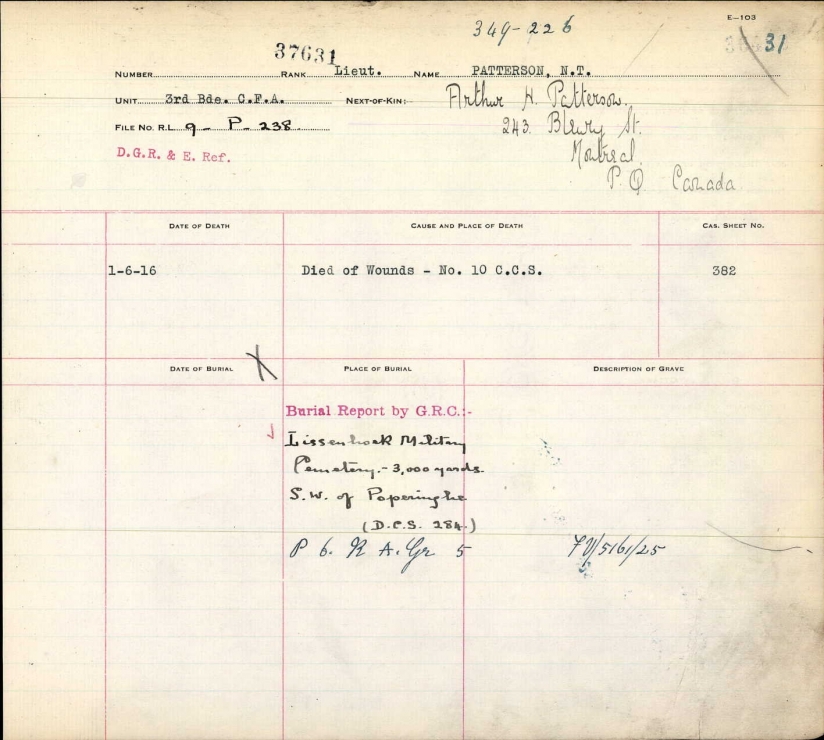 E-103
349-226
37631
31
NUMBER RANK Lieut. NAME PATTERSON, N.T.
UNIT 3rd Bde. C.F.A. NEXT-OF-KIN:- Arthur H. Patterson.
FILE No. R.L. 9 - P - 238 243 Bleury St.
D.G.R. & E. Ref. Montreal
P Q Canada
DATE OF DEATH CAUSE AND PLACE OF DEATH CAS. SHEET NO.
1-6-16 Died of Wounds - No. 10 C.C.S. 382
DATE OF BURIAL PLACE OF BURIAL DESCRIPTION OF GRAVE
Burial Report by G.R.C.:-
Lissenhoek Military
Cemetery.- 3,000 yards.
S.W. of Poperinghe
(D.C.S. 284.)
P 6. R A. Gr 5